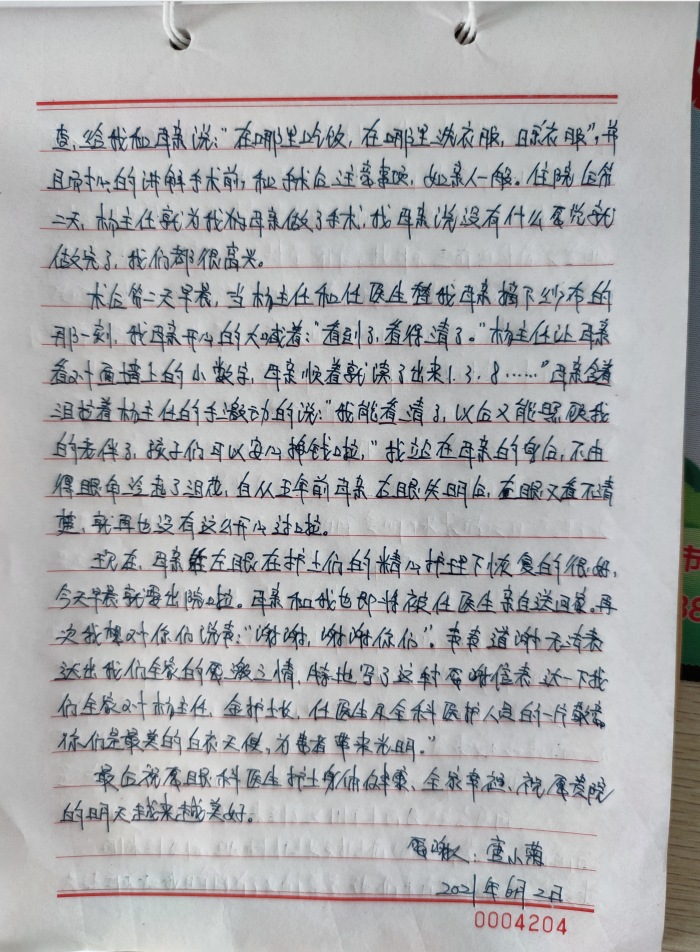 查,给我和母亲说:"在哪里吃饭,在哪里洗衣服,晾衣服",并
且耐心的讲解手术前,和手术后注意事项,如亲人一般。住院后第
二天,杨主任就为我的母亲做了手术,我母亲说没有什么感觉就
做完了,我们都很高兴。
术后第二天早晨,当杨主任和任医生替我母亲摘下纱布的
那一刻,我母亲开心的大喊着:"看到了,看得清了。"杨主任让母亲
看对面墙上的小数字,母亲顺着就读了出来1.3.8……"母亲含着
泪拉着杨主任的手激动的说:"我能看清了,以后又能照顾我
的老伴了,孩子们可以安心挣钱啦,"我站在母亲的身后,不由
得眼角泛起了泪花,自从五年前母亲右眼失明后,左眼又看不清
楚,就再也没有这么开心过啦。
现在,母亲左眼在护士们的精心护理下恢复的很好,
今天早晨就要出院啦。母亲和我也即将被任医生亲自送回家。再
次我想对你们说声:"谢谢,谢谢你们"。声声道谢无法表
达出我们全家的感激之情,特地写了这封感谢信表达一下我
们全家对杨主任,金护士长,任医生及全科医护人员的一片敬意
你们是最美的白衣天使,为患者带来光明。"
最后祝愿眼科医生护士身体健康、全家幸福、祝愿贵院
的明天越来越美好。
感谢人:唐小菊
2021年6月2日
0004204
节
38